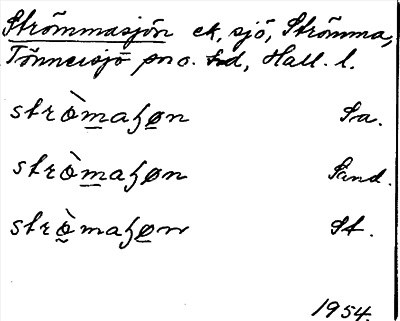 Strömmasjön ek, sjö, Strömma,
Tönnersjö sn o. hd, Hall. l.
stròmaɧøn Sa.
stròmaɧøn Sand.
stròmaɧøn St.
1954.